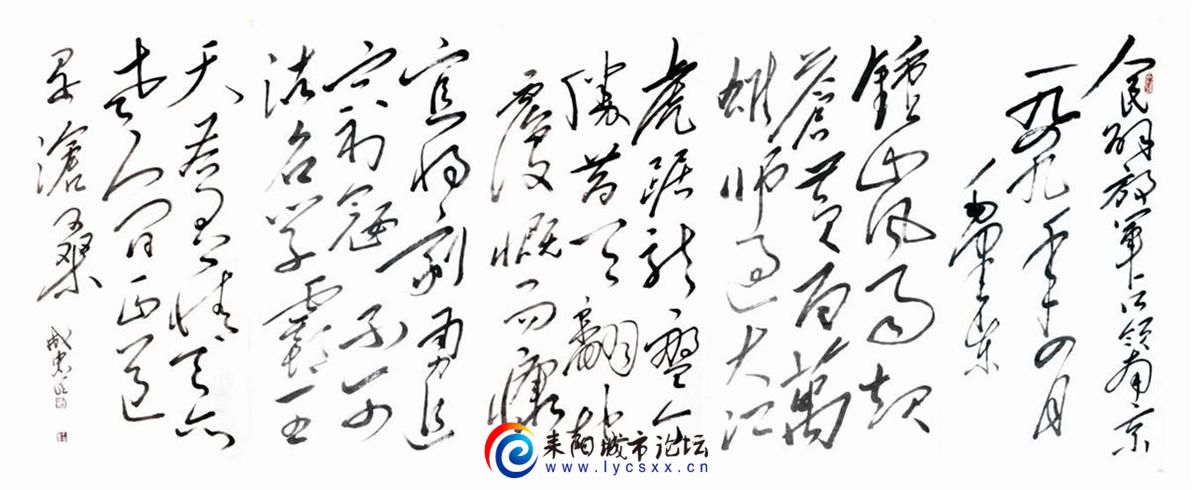 人民解放軍占领南京
一九四九年四月
毛泽东
鍾山风雨起
蒼黄百萬
雄师过大江
虎踞龙盘今
勝昔天翻地
覆慨而慷
宜将剩勇追
穷寇不可
沽名学霸王
天若有情天亦
老人间正道
是滄桑
耒阳城市论坛
www.lycsxx.cn